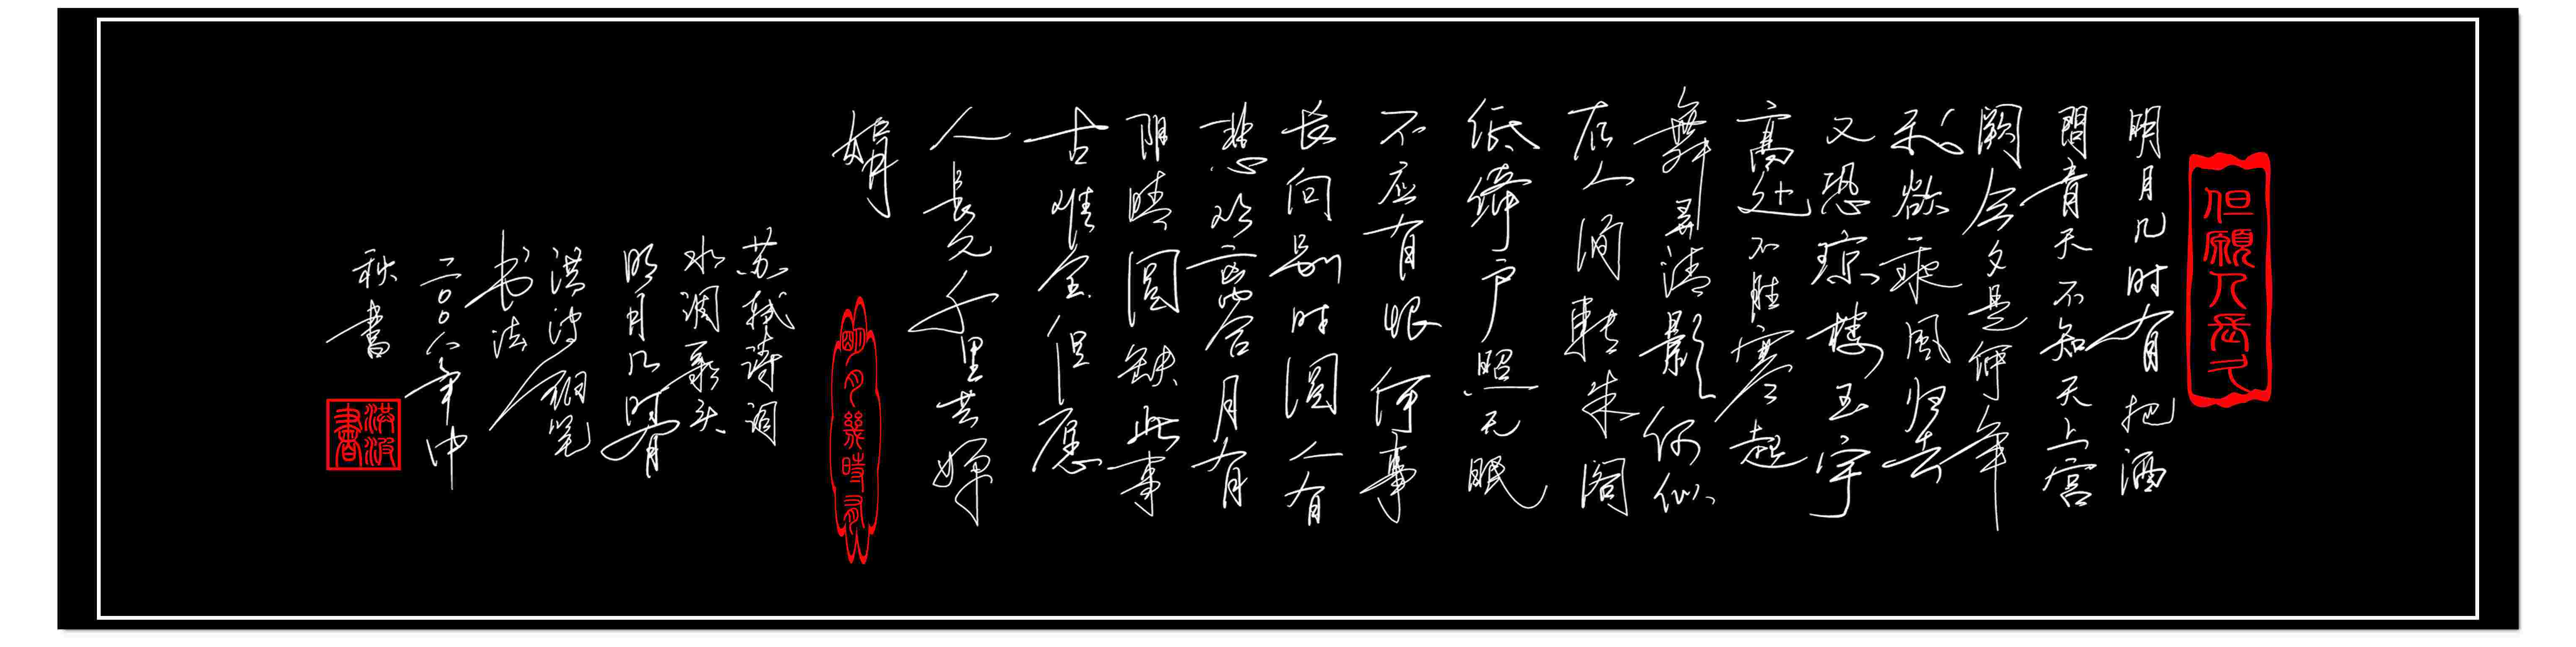 但願人長久
明月几时有把酒
問青天不知天上宫
阙今夕是何年
我欲乘風归去
又恐琼楼玉宇
高处不胜寒起
舞弄清影何似
在人间转朱阁
低绮户照无眠
不应有恨何事
长向别时圆人有
悲欢离合月有
阴晴圆缺此事
古难全但愿
人長久千里共婵
娟
明月幾時有
苏轼诗词
水调歌头
明月几时有
洪波钢笔
书法
二〇〇八年中
秋書
洪波書